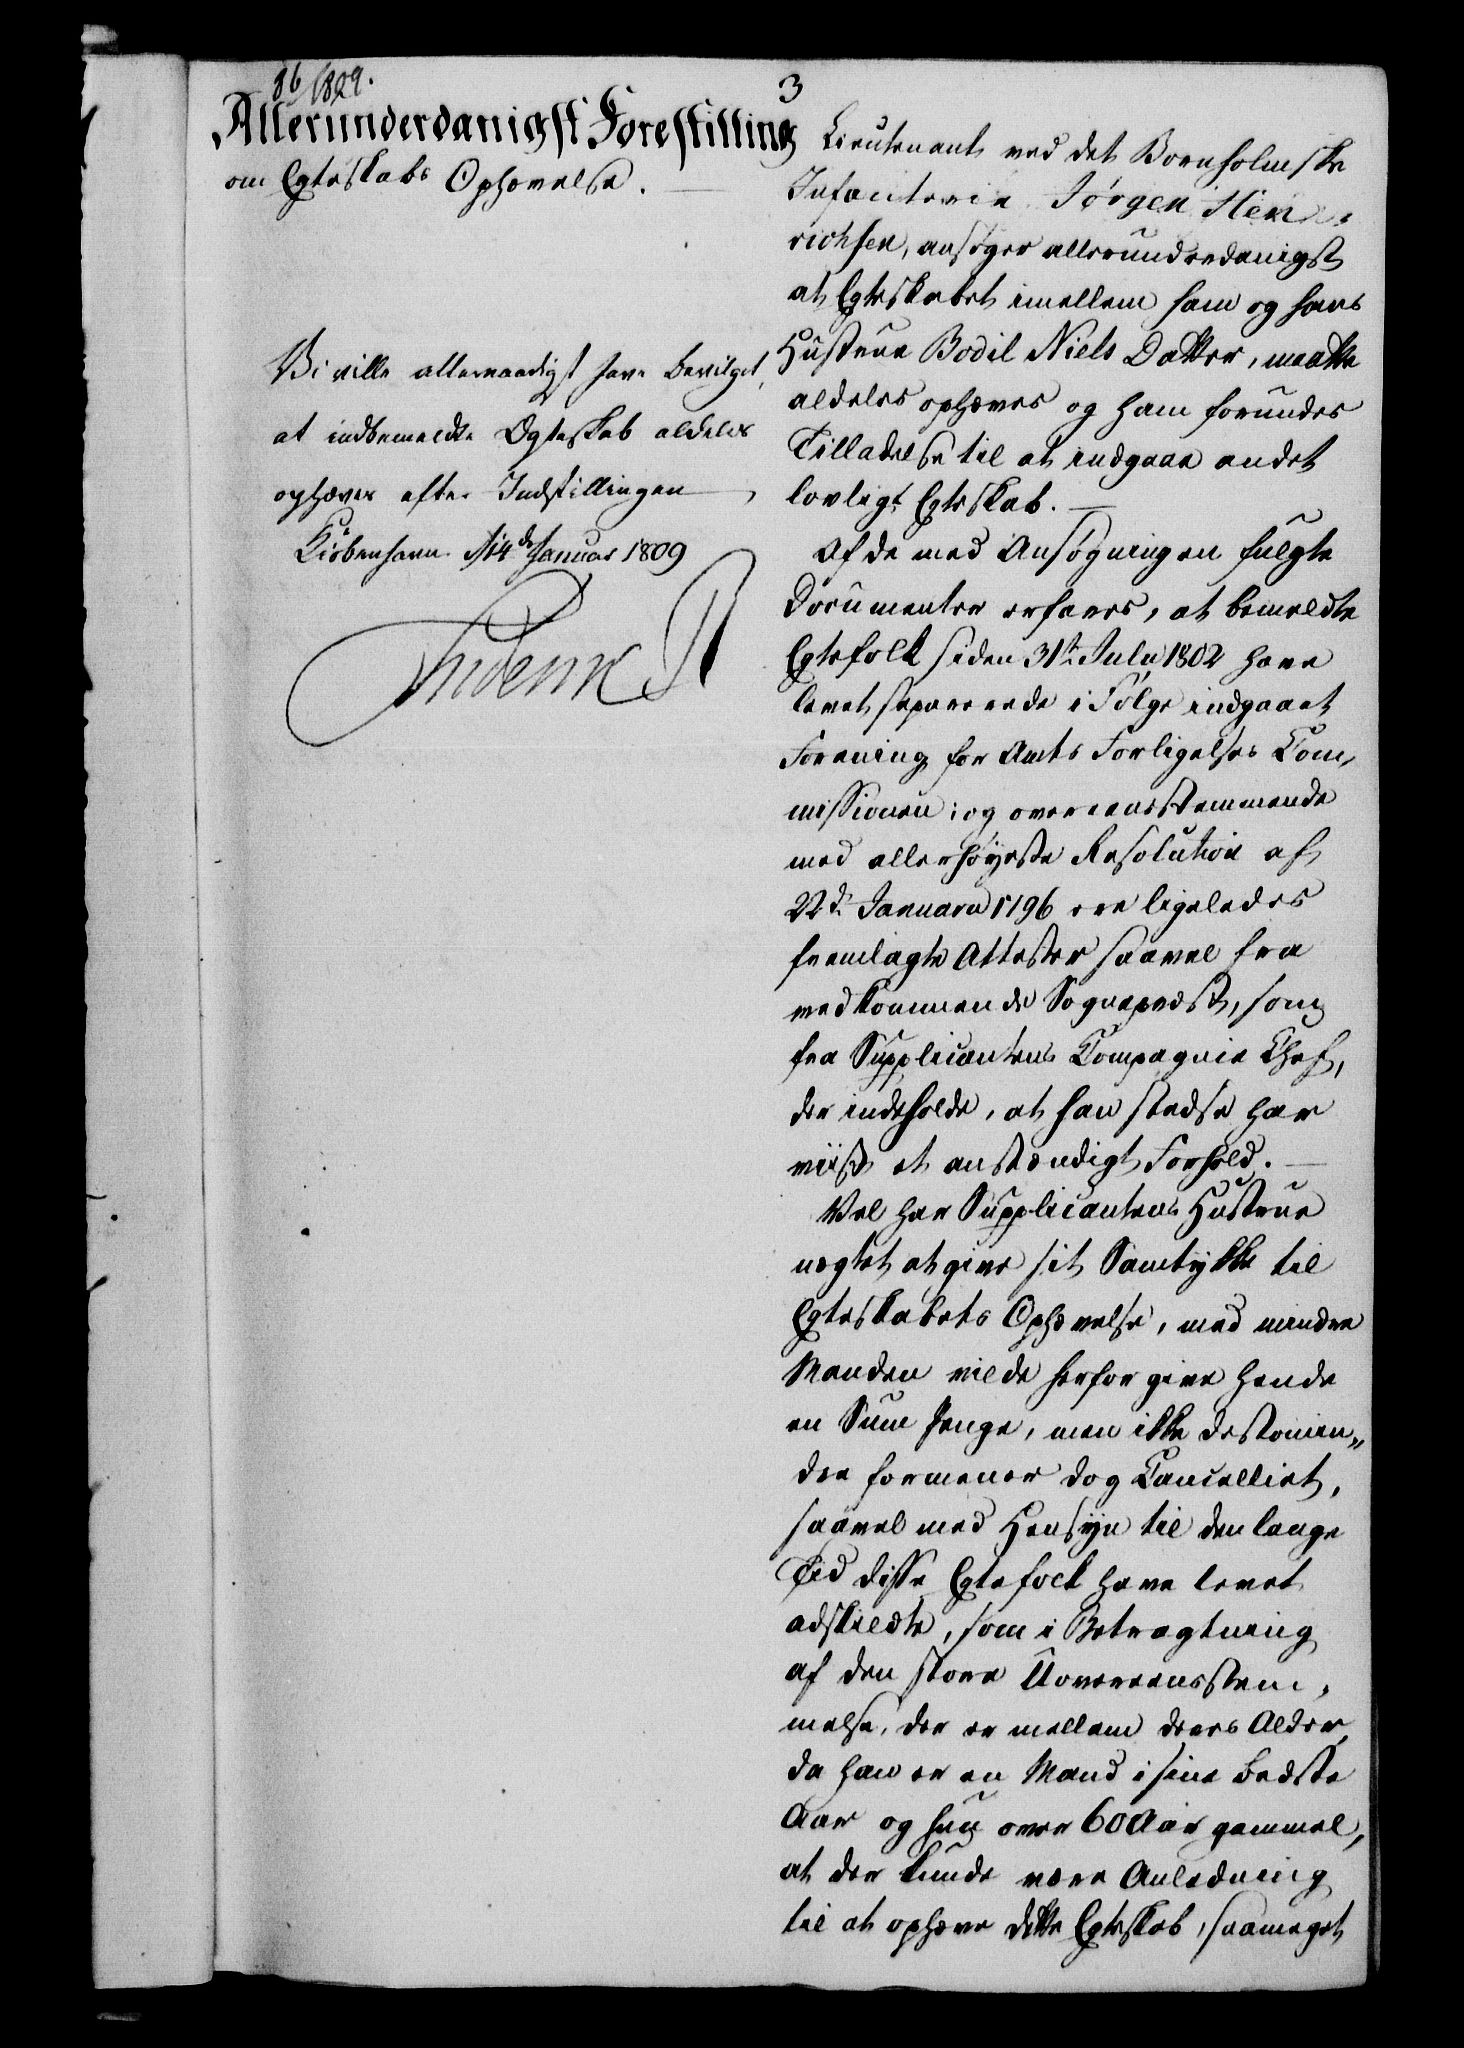 16/1809.
3
Allerunderdanigst Forestilling
om Egteskabs Ophævelse.
Vi ville allernaadigst have bevilget,
at indbemeldte Ægteskab aldeles
ophæves efter Indstillingen
Kiøbenhavn d 14de Januar 1809
Frideric R
Lieutenant ved det Bornholmske
Infanterie Jørgen Hen-
richsen, ansøger allerunderdanigst
at Egteskabet imellem ham og hans
Hustrue Bodil Niels Datter, maatte
aldeles ophæves og ham forundes
Tilladelse til at indgaae andet
lovligt Egteskab. —
Af de med Ansøgningen fulgte
Documenter erfares, at bemeldte
Egtefolk siden 31te July 1802 have
levet separerede i Følge indgaaet
Forening for Amts Forligelses Com-
missionen; og overeensstemmende
med allerhøyeste Resolution af
22de January 1796 ere ligeledes
fremlagte Attester saavel fra
vedkommende Sognepræst, som
fra Supplicantens Compagnie Chef,
der indeholde, at han stedse har
viist et anstændigt Forhold. —
Vel har Supplicantens Hustrue
nægtet at give sit Samtykke til
Egteskabets Ophævelse, med mindre
Manden vilde herfor give hende
en Sum Penge, men ikke destomin-
dre formener dog Cancelliet,
saavel med Hensyn til den lange
Tid disse Egtefolk have levet
adskildte, som i Betragtning
af den store Uovereensstem-
melse, der er mellem deres Alder,
da han er en Mand i sine bedste
Aar og hun over 60 Aar gammel,
at der kunde være Anledning
til at ophæve dette Egteskab, saameget